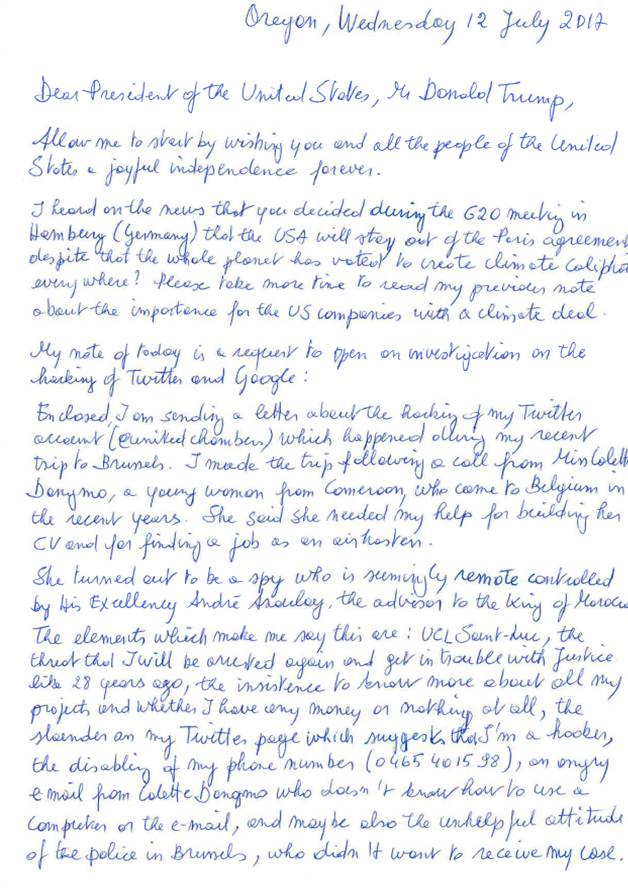 Oregon, Wednesday 12 July 2017
Dear President of the United States, Mr Donald Trump,
Allow me to start by wishing you and all the people of the United
States a joyful independence forever.
I heard on the news that you decided during the G20 meeting in
Hamburg (Germany) that the USA will stay out of the Paris agreement
despite that the whole planet has voted to create climate caliphat
everywhere? Please take more time to read my previous note
about the importance for the US companies with a climate deal.
My note of today is a request to open an investigation on the
hacking of Twitter and Google:
Enclosed, I am sending a letter about the hacking of my Twitter
account (@unitedchambers) which happened during my recent
trip to Brussels. I made the trip following a call from Miss Colette
Dongmo, a young woman from Cameroon, who came to Belgium in
the recent years. She said she needed my help for building her
CV and for finding a job as an airhostess.
She turned out to be a spy who is seemingly remote controlled
by His Excellency André Azoulay, the advisor to the King of Morocco
The elements which make me say this are: UCL Saint-Luc, the
threat that I will be arrested again and get in trouble with Justice
like 28 years ago, the insistence to know more about all my
projects and whether I have any money or nothing at all, the
slaender on my Twitter page which suggests that I'm a hooker,
the disabling of my phone number (0465401598), an angry
e mail from Colette Dongmo who doesn't know how to use a
computer or the e-mail, and maybe also the unhelpful attitude
of the police in Brussels, who didn't want to receive my case.